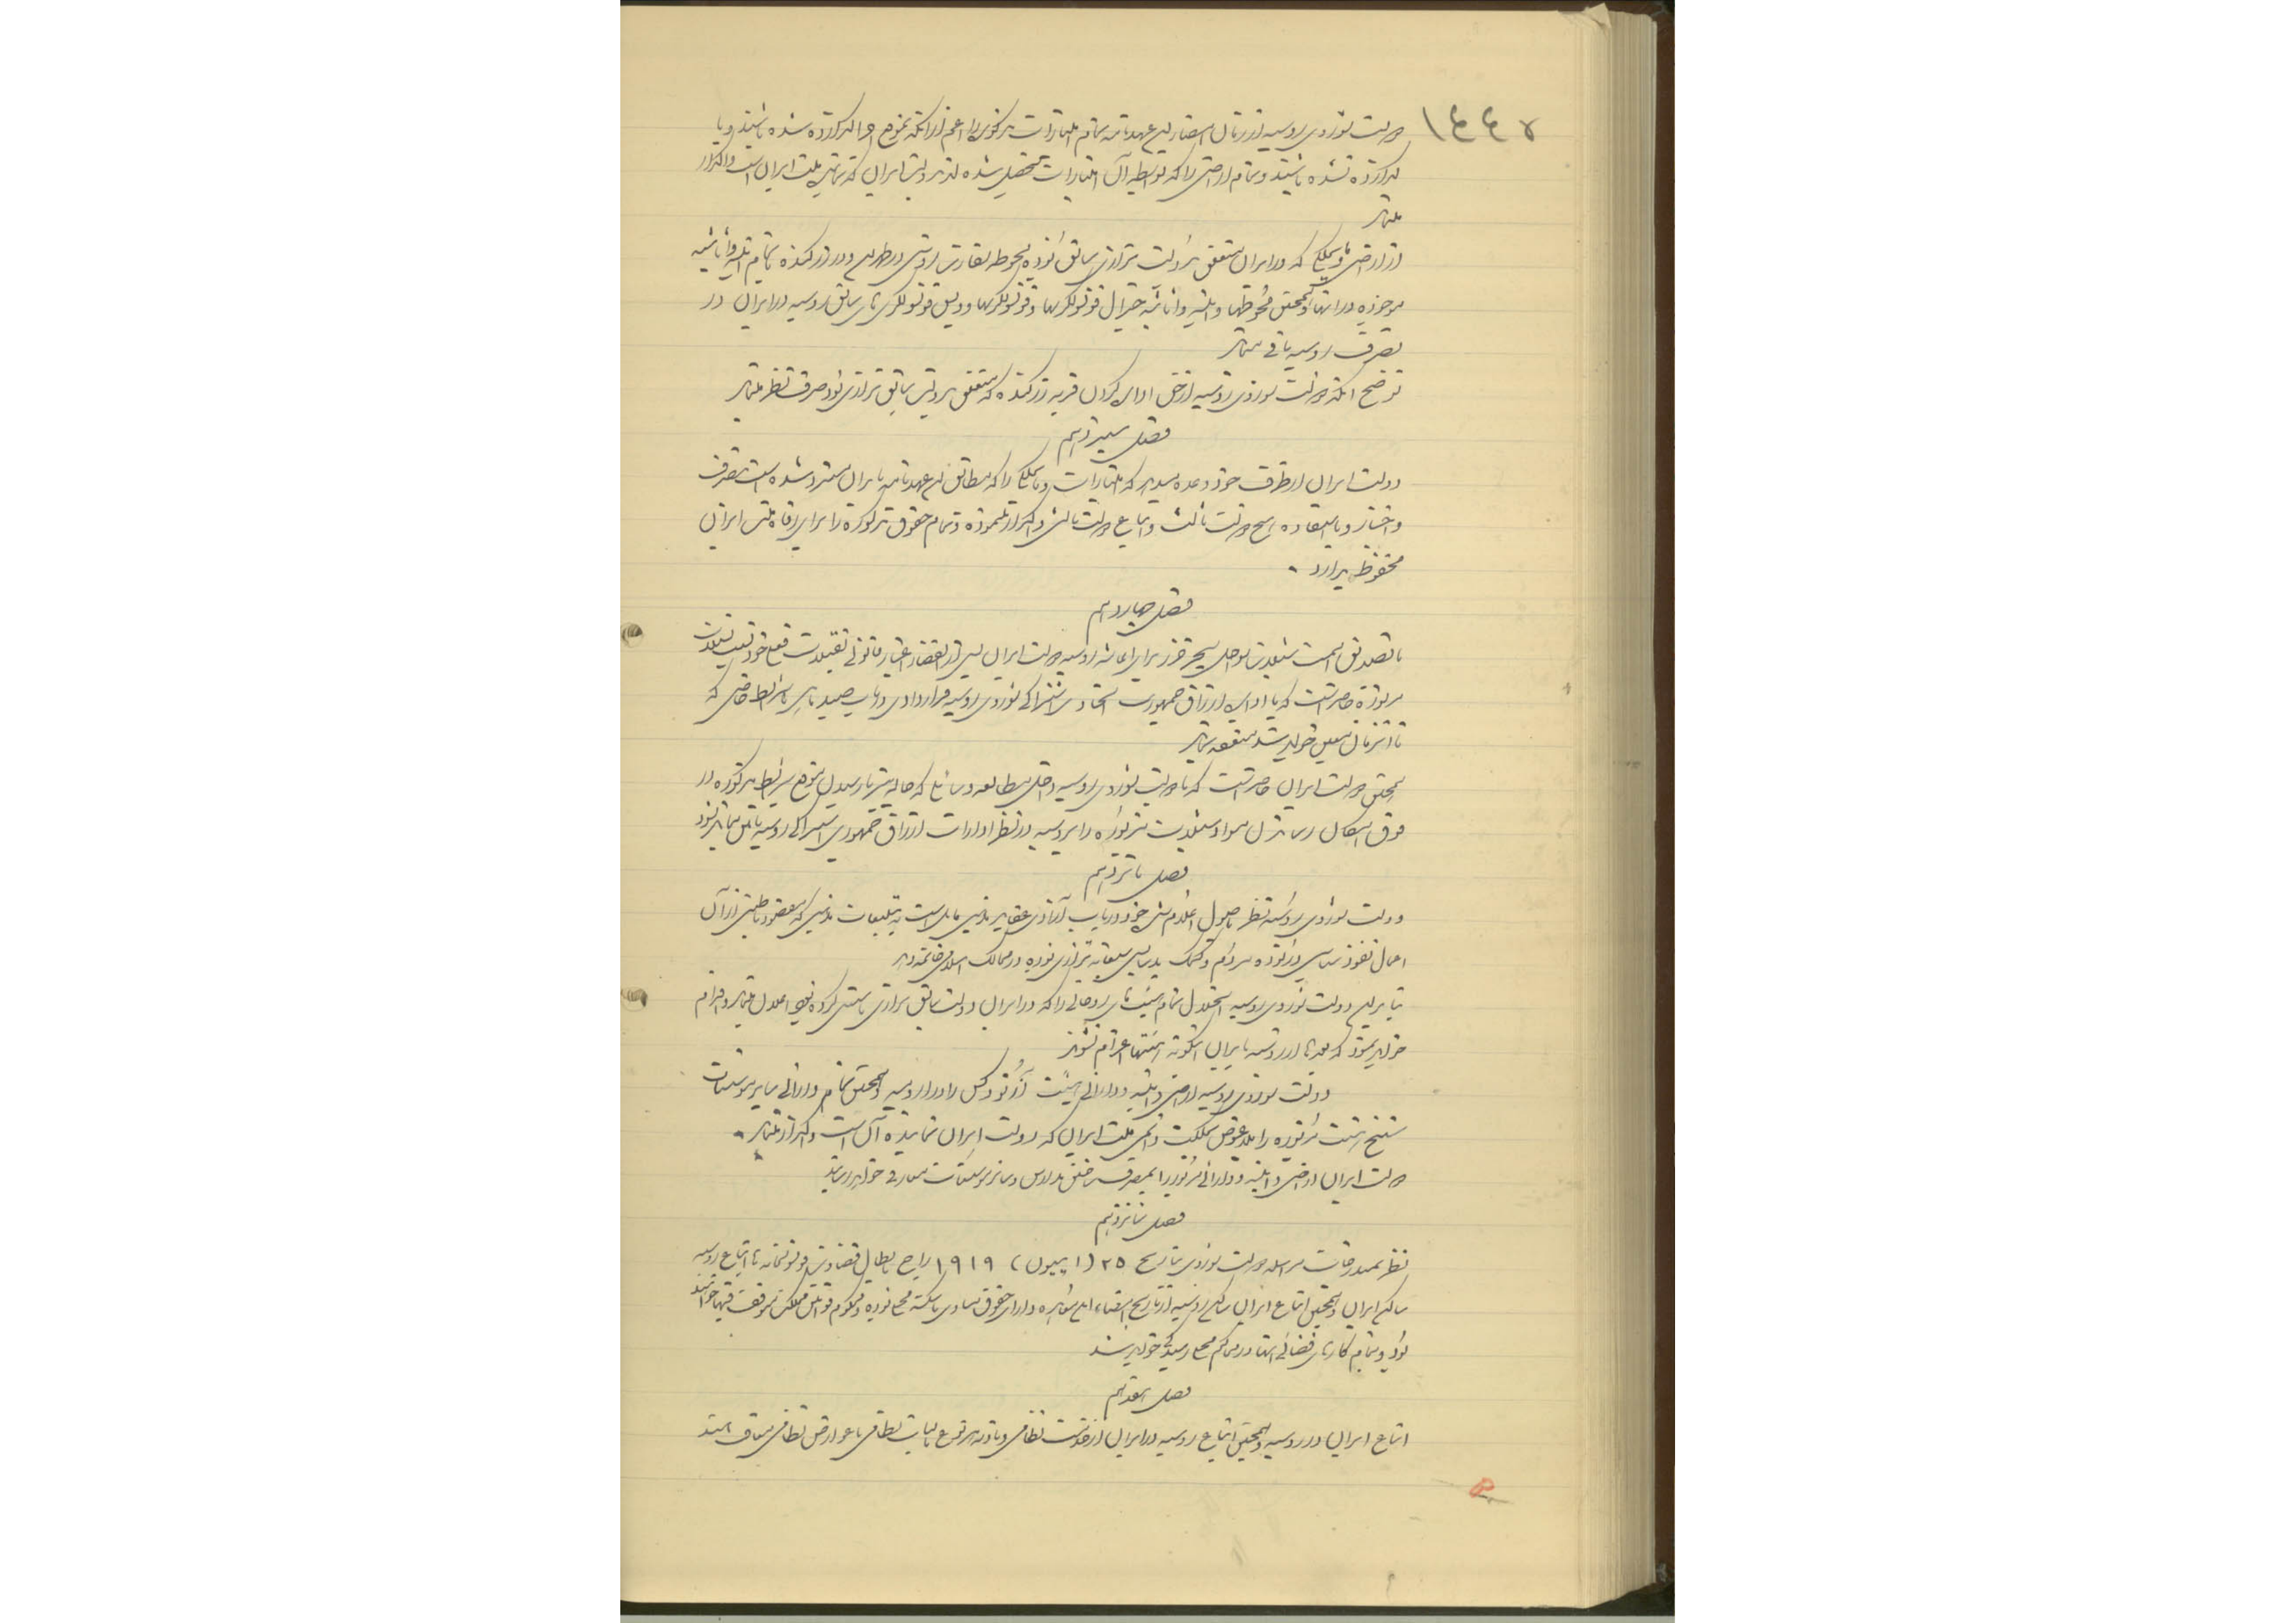 ۱۴۴۵
دولت شوروی روسیه از زمان امضاء این عهدنامه تمام امتیازات مذکوره را اعم از آنکه بموقع اجرا گذارده شده باشند و یا
گذارده نشده باشند و تمام اراضی را که بواسطه آن امتیازات تحصیل شده‌اند بدولت ایران که نماینده ملت ایران است واگذار
مینماید
از اراضی و مایملکی که در ایران متعلق بدولت تزاری سابق بوده محوطه سفارت روس در طهران و در زرگنده با تمام ابنیه و اثاثیه
موجوده در آنها و همچنین محوطه‌ها و ابنیه و اثاثیه جنرال قونسولگریها و قونسولگریها و ویس قونسولگری‌های سابق روسیه در ایران در
تصرف روسیه باقی میماند
توضیح آنکه دولت شوروی روسیه از حق اداره کردن قریه زرگنده که متعلق بدولت سابق تزاری بود صرف نظر مینماید
فصل سیزدهم
دولت ایران از طرف خود وعده میدهد که امتیازات و مایملکی را که مطابق این عهدنامه بایران مسترد شده است بتصرف
و اختیار و یا استفاده هیچ دولت ثالث و اتباع دولت ثالثی واگذار ننموده و تمام حقوق مذکوره را برای رفاه ملت ایران
محفوظ بدارد .
فصل چهاردهم
با تصدیق اهمیت شیلات سواحل بحر خزر برای اعاشه روسیه دولت ایران پس از انقضاء اعتبار قانونی تقبلات فعلی خود نسبت بشیلات
مزبوره حاضر است که با اداره ارزاق جمهوری اتحادی اشتراکی شوروی روسیه قراردادی در باب صید ماهی با شرایط خاصی که
تا آنزمان معین خواهد شد منعقد نماید
همچنین دولت ایران حاضر است که با دولت شوروی روسیه داخل مطالعه وسائلی که حالیه نیز تا رسیدن موقع شرایط مذکوره در
فوق امکان رساندن مواد شیلات مزبوره را بروسیه در نظر ادارات ارزاق جمهوری اشتراکی روسیه تأمین نماید بشود
فصل پانزدهم
دولت شوروی روسیه نظر باصول اعلام شده خود در باب آزادی عقاید مذهبی مایل است به تبلیغات مذهبی که مقصود باطنی از آن
اعمال نفوذ سیاسی در توده مردم و کمک بدسایس سبعانه تزاری بوده در ممالک اسلامی خاتمه دهد
بنابراین دولت شوروی روسیه انحلال تمام هیئت‌های روحانی را که در ایران دولت سابق تزاری تأسیس کرده بود اعلان مینماید و اقدام
خواهد نمود که بعدها از روسیه بایران اینگونه هیئتها اعزام نشوند
دولت شوروی روسیه اراضی و ابنیه و دارائی هیئت ارتودوکس را در ارومیه و همچنین تمام دارائی سایر مؤسسات
سنخ هیئت مزبوره را بلاعوض بملکیت دائمی ملت ایران که دولت ایران نماینده آن است واگذار مینماید .
دولت ایران اراضی و ابنیه و دارائی مزبور را بمصرف ساختن مدارس و سایر مؤسسات معارفی خواهد رسانید
فصل شانزدهم
نظر بمندرجات مراسله دولت شوروی بتاریخ ۲۵ (ایبیون) ۱۹۱۹ راجع بابطال قضاوت قونسولخانه‌ها اتباع روسیه
ساکن ایران و همچنین اتباع ایران ساکن روسیه از تاریخ امضاء این معاهده دارای حقوق مساوی با سکنه محلی بوده و محکوم قوانین مملکت متوقف فیها خواهند
بود و تمام کارهای قضائی آنها در محاکم محلی رسیدگی خواهد شد
فصل هفدهم
اتباع ایران در روسیه و همچنین اتباع روسیه در ایران از خدمت نظامی و تأدیه هر نوع مالیات نظامی یا عوارض نظامی معاف هستند